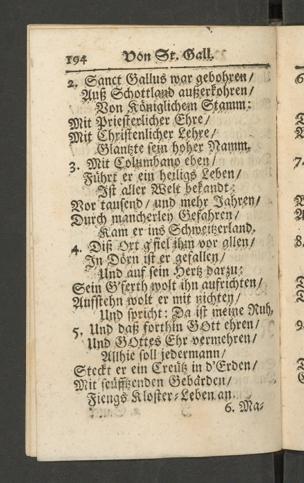 194 Von St. Gall.
2. Sanct Gallus war gebohren/
Auß Schottland außerkohren/
Von Königlichem Stamm:
Mit Priesterlicher Ehre/
Mit Christenlicher Lehre/
Glantzte sein hoher Namm.
3. Mit Columbano eben/
Führt er ein heiligs Leben/
Ist aller Welt bekandt:
Vor tausend/ und mehr Jahren/
Durch mancherley Gefahren/
Kam er ins Schweitzerland.
4. Diß Ort g'fiel ihm vor allen/
In Dörn ist er gefallen/
Und auf sein Hertz darzu:
Sein G'ferth wolt ihn aufrichten/
Aufstehn wolt er mit nichten/
Und spricht: Da ist meine Ruh.
5. Und daß forthin GOtt ehren/
Und GOttes Ehr vermehren/
Allhie soll jedermann/
Steckt er ein Creütz in d'Erden/
Mit seüfftzenden Gebärden/
Fiengs Kloster-Leben an.
6. Ma-